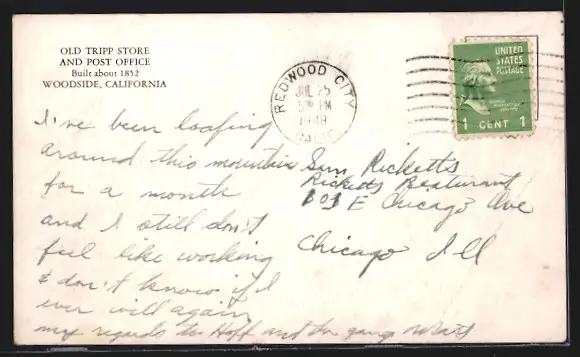 OLD TRIPP STORE
AND POST OFFICE
Built about 1852
WOODSIDE, CALIFORNIA
REDWOOD CITY
JUL 25
PM
UNITED
STATES
POSTAGE
1 CENT 1
I've been loafing
around this mountain
for a month
and I still don't
feel like working
& don't know if I
ever will again
my regards to Hoff and the gang
Ricketts
Ricketts Restaurant
E Chicago Ave
Chicago Ill